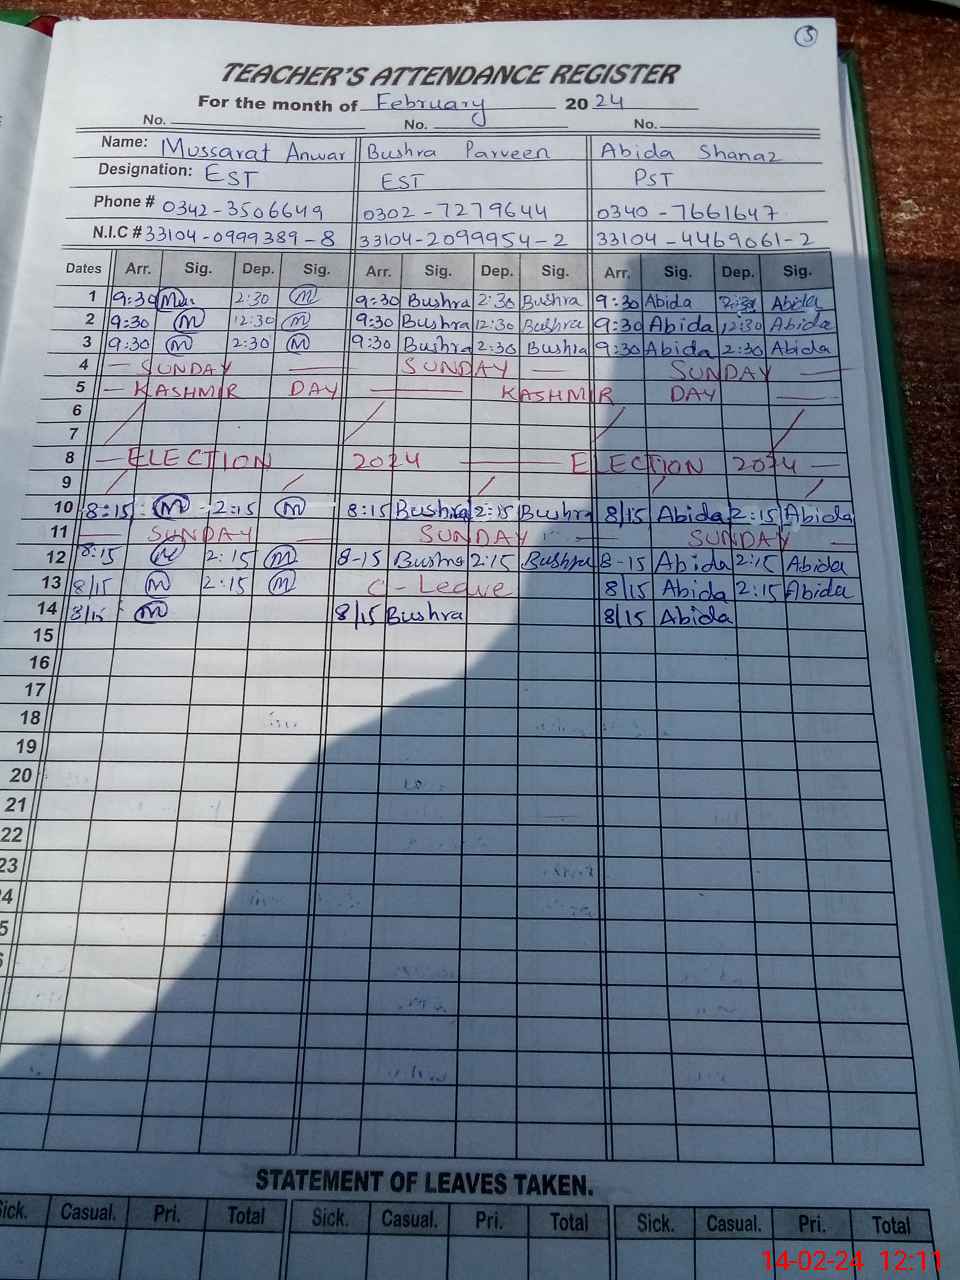 5
TEACHER'S ATTENDANCE REGISTER
For the month of February 2024
No. No. No.
Name: Mussarat Anwar Bushra Parveen Abida Shanaz
Designation: EST EST PST
Phone # 0342-3506649 0302-7279644 0340-7661647
N.I.C # 33104-0999389-8 33104-2099954-2 33104-4469061-2
Dates Arr. Sig. Dep. Sig. Arr. Sig. Dep. Sig. Arr. Sig. Dep. Sig.
1 9:30 2:30 M 9:30 Bushra 2:30 Bushra 9:30 Abida 2:30 Abida
2 9:30 M 12:30 M 9:30 Bushra 12:30 Bushra 9:30 Abida 12:30 Abida
3 9:30 M 2:30 M 9:30 Bushra 2:30 Bushra 9:30 Abida 2:30 Abida
4 — SUNDAY — SUNDAY — SUNDAY —
5 — KASHMIR DAY — KASHMIR DAY —
6
7
8 — ELECTION 2024 — ELECTION 2024 —
9
10 8:15 M 2:15 M 8:15 Bushra 2:15 Bushra 8/15 Abida 2:15 Abida
11 — SUNDAY — SUNDAY — SUNDAY —
12 8:15 M 2:15 M 8-15 Bushra 2:15 Bushra 8-15 Abida 2:15 Abida
13 8/15 M 2:15 M C-Leave 8/15 Abida 2:15 Abida
14 8/15 M 8/15 Bushra 8/15 Abida
15
16
17
18
19
20
21
22
23
4
5
STATEMENT OF LEAVES TAKEN.
Sick. Casual. Pri. Total Sick. Casual. Pri. Total Sick. Casual. Pri. Total
14-02-24 12:11